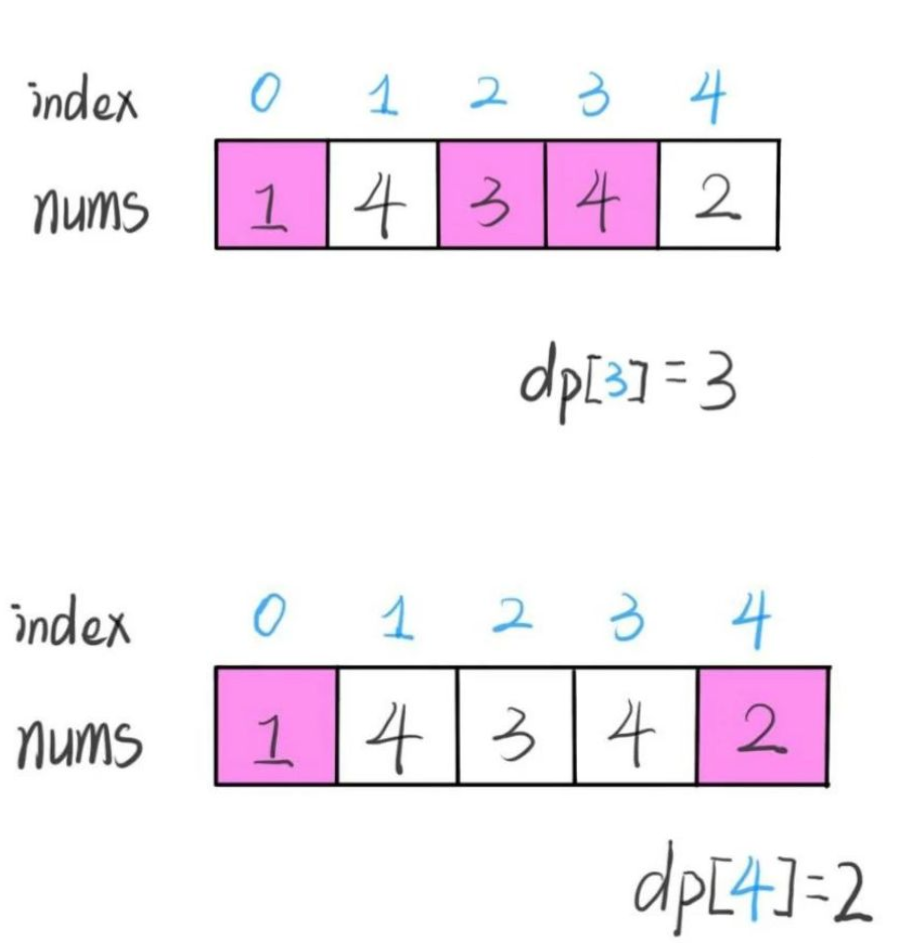 index 0 1 2 3 4
nums 1 4 3 4 2
dp[3]=3
index 0 1 2 3 4
nums 1 4 3 4 2
dp[4]=2